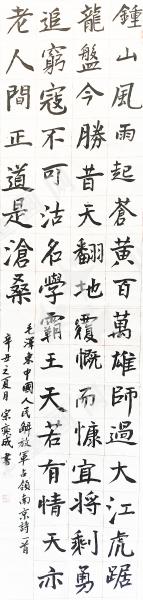 鍾山風雨起蒼黃百萬雄師過大江虎踞
龍盤今勝昔天翻地覆慨而慷宜將剩勇
追窮寇不可沽名學霸王天若有情天亦
老人間正道是滄桑
毛澤東中國人民解放軍占領南京詩一首
辛丑之夏月宗奕成書